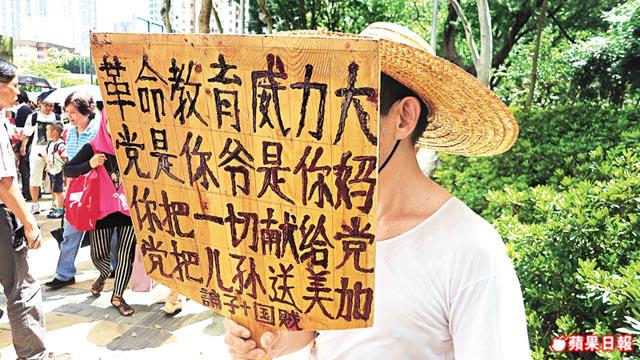 革命教育威力大
党是你爷是你妈
你把一切献给党
党把儿孙送美加
国贼
蘋果日報